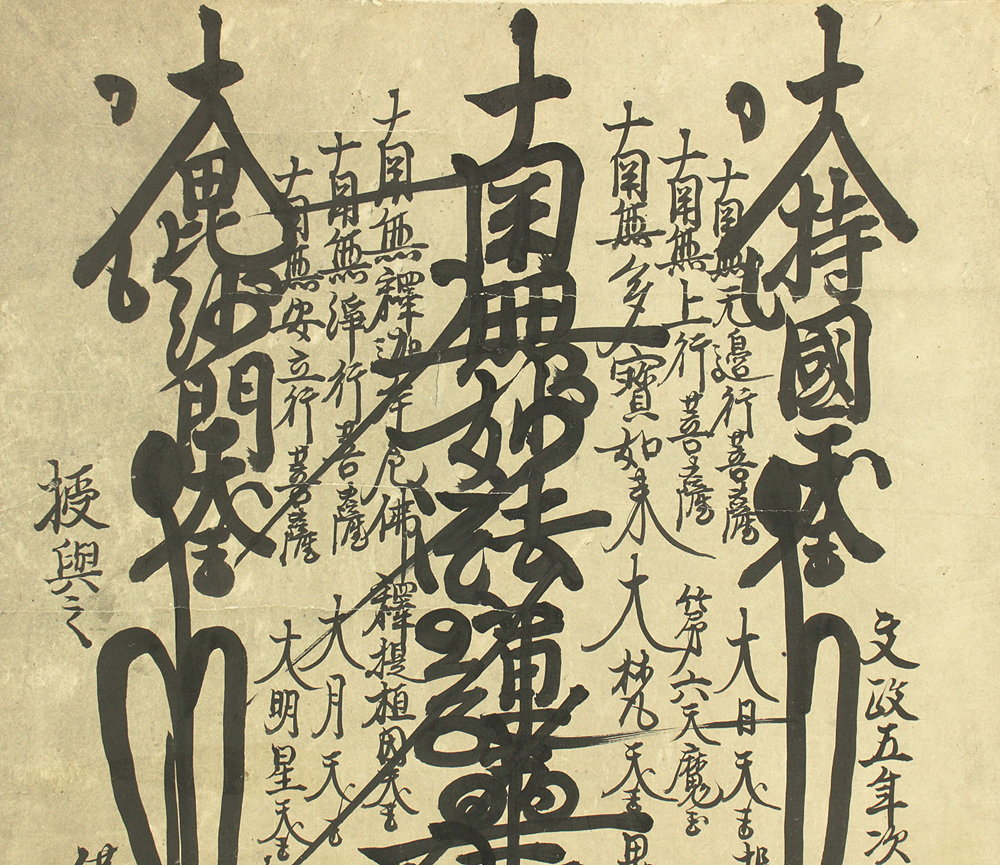 文政五年次
大持國天王
南無无邊行菩薩
大日天王
南無上行菩薩
第六天魔王
南無多寶如来
大梵天王
南無妙法蓮華
南無釋迦牟尼佛
釋提桓因天王
南無淨行菩薩
大月天王
南無安立行菩薩
大明星天王
大毘沙門天王
授與之